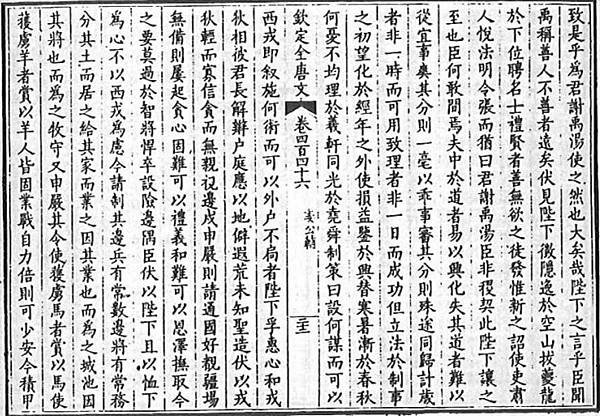 致是乎為君謝禹湯使之然也大矣哉陛下之言乎臣聞
禹稱善人不善者遠矣伏見陛下徵隱逸於空山拔夔龍
於下位聘名士禮賢者善無欲之徒發惟新之詔使吏肅
人悅法明令張而猶曰君謝禹湯臣非稷契此陛下讓之
至也臣何敢間焉夫中於道者易以興化失其道者難以
從宜事矣其分則一毫以乖事審其分則殊途同歸計歲
者非一時而可用致理者非一日而成功但立法於制事
之初望化於經年之外使損益鑒於興替寒暑漸於春秋
何憂不均理於羲軒同光於堯舜制策曰設何謀而可以
欽定全唐文 卷四百四十六 姜公輔
西戎即叙施何術而可以外户不扃者陛下乎惠心和戎
狄相彼君長解辮户庭應以地僻遐荒未知聖造伏以戎
狄輕而寡信貪而無親設邊戍申嚴則請通國好覩疆場
無備則屢起貪心固難可以禮義和難可以恩澤撫取今
之要莫過於智將悍卒設險邊隅臣伏以陛下且以恤下
為心不以西戎為慮今請制其邊兵有常數邊將有常務
分其土而居之給其家而業之因其業也而為之城池因
其將也而為之牧守又申嚴其令使獲虜馬者賞以馬使
獲虜羊者賞以羊人皆固業戰自力倍則可少安今積甲